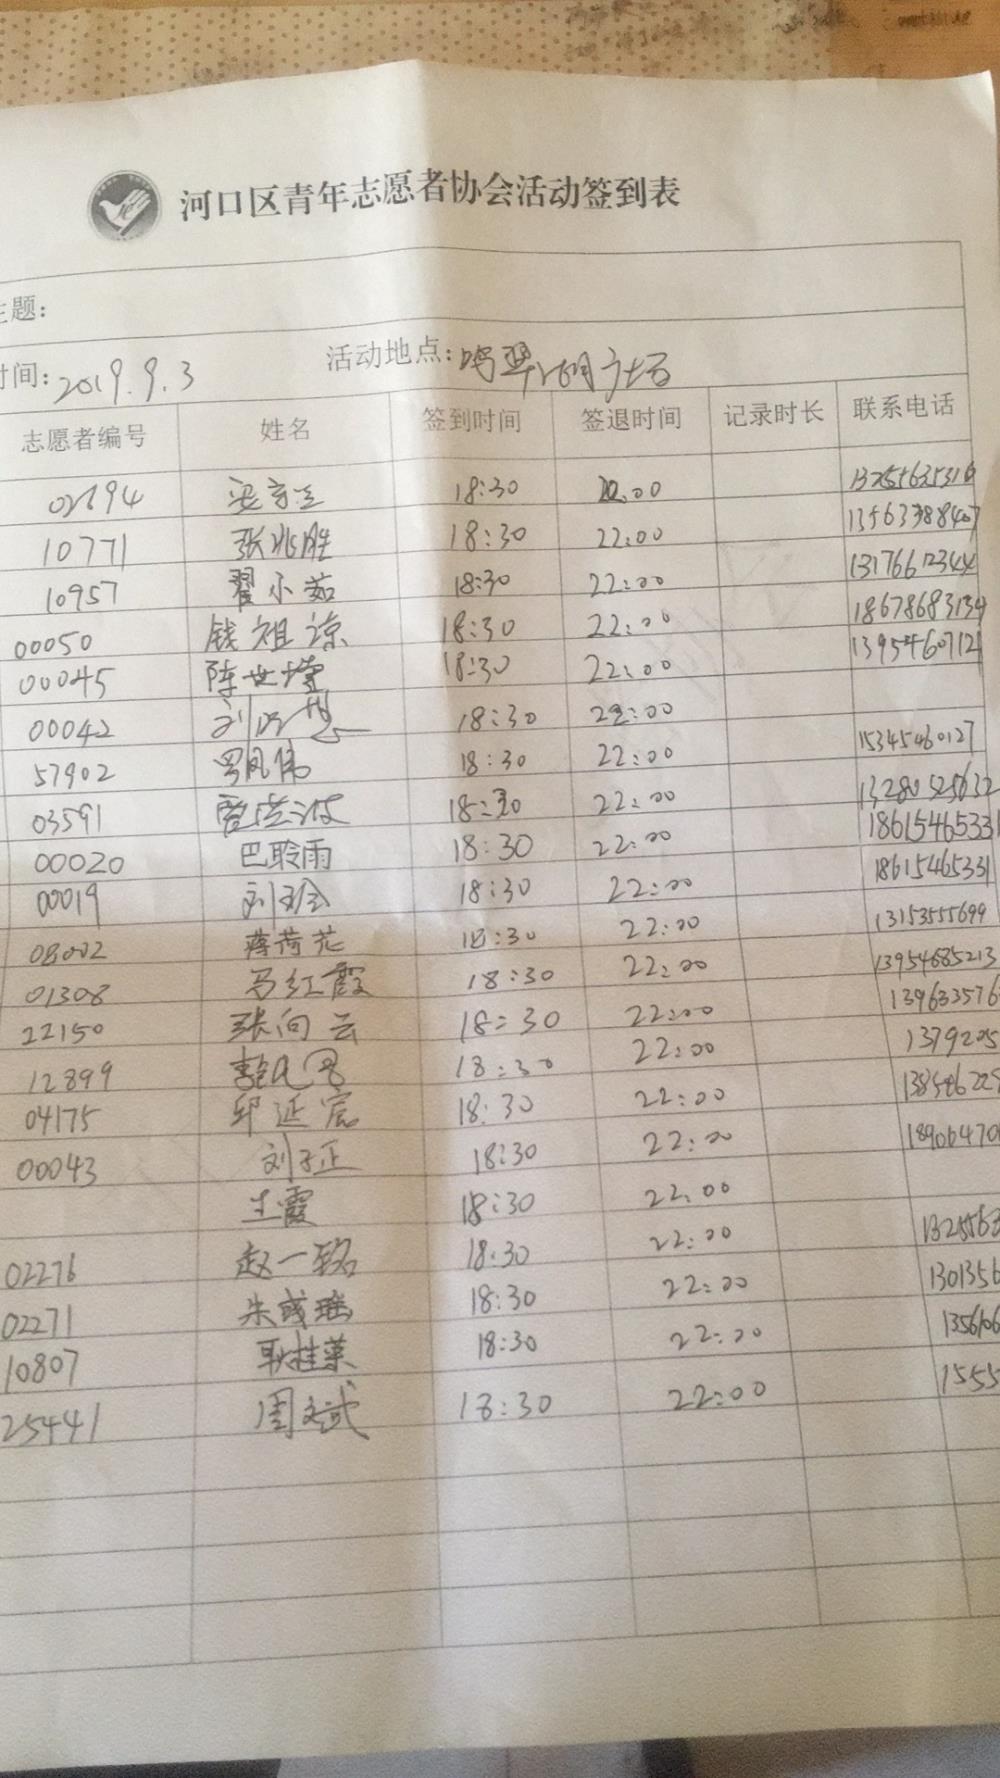 河口区青年志愿者协会活动签到表
主题:
时间: 2019.9.3 活动地点: 鸣翠湖广场
志愿者编号 姓名 签到时间 签退时间 记录时长 联系电话
18:30 22:00
10771 张兆胜 18:30 22:00
10957 翟小茹 18:30 22:00 13176612344
00050 钱祖谅 18:30 22:00 18678683134
00045 18:30 22:00 13954607121
00042 18:30 22:00
57902 18:30 22:00 15345460127
03591 18:30 22:00 13280525632
00020 巴聆雨 18:30 22:00 18615465331
00019 18:30 22:00 18615465331
08002 蒋荷花 18:30 22:00 13153555699
01308 马红霞 18:30 22:00 13954685213
22150 张向云 18:30 22:00 139633576
12899 18:30 22:00 1379205
04175 邱延宾 18:30 22:00
00043 刘子正 18:30 22:00
王霞 18:30 22:00
02276 赵一铭 18:30 22:00
02271 18:30 22:00 1301356
10807 耿桂莱 18:30 22:00 1356106
25441 周文斌 18:30 22:00 1555